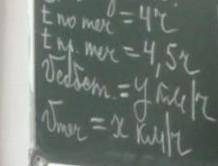 t по теч = 4ч
t пр. теч = 4,5ч
Vсобст. = y км/ч
Vтеч = x км/ч